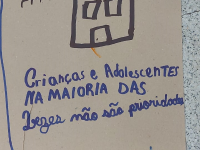 Crianças e Adolescentes
NA MAIORIA DAS
Vezes não são prioridades